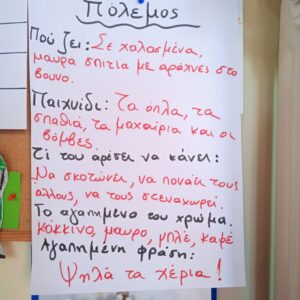 Πόλεμος
Πού ζει: Σε χαλασμένα,
μαύρα σπίτια με αράχνες στο
βουνο.
Παιχνίδι: Τα όπλα, τα
σπαθιά, τα μαχαίρια και οι
βόμβες.
Τι του αρέσει να κάνει:
Να σκοτώνει, να πονάει τους
άλλους, να τους στεναχωρεί.
Το αγαπημένο του χρώμα:
κόκκινο, μαύρο, μπλέ, καφέ
Αγαπημένη φράση:
Ψηλά τα χέρια!